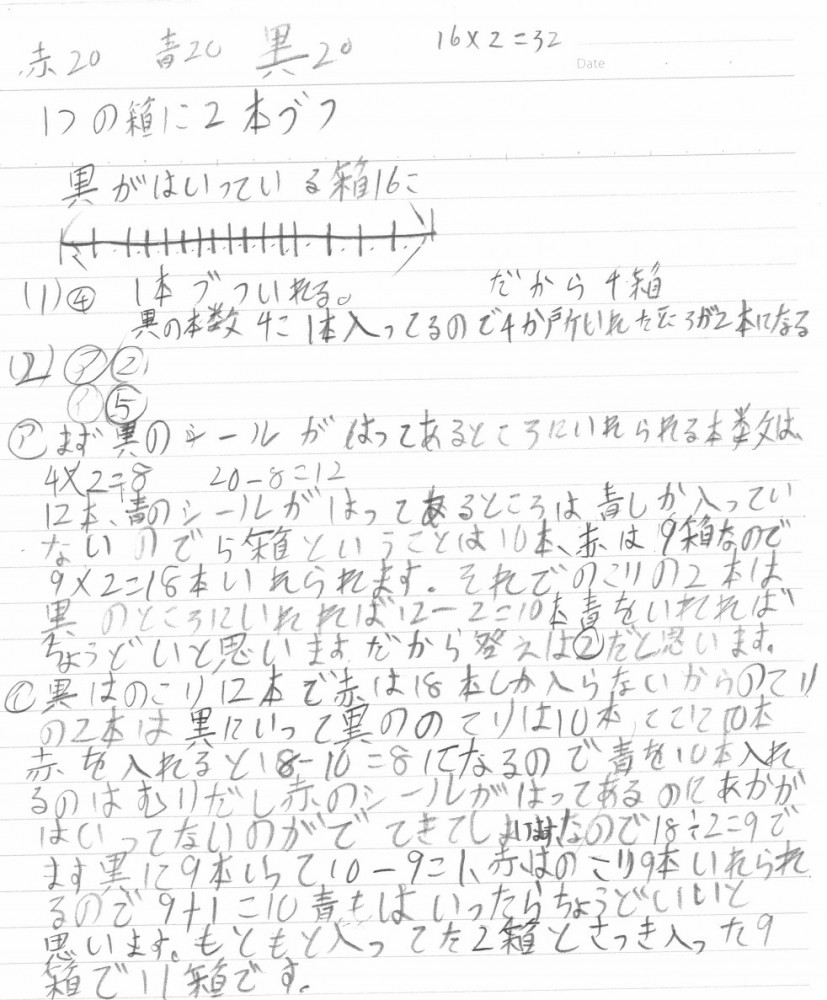 赤20 青20 黒20 16×2=32
Date
1つの箱に2本づつ
黒がはいっている箱16こ
(1)④ 1本づついれる。 だから4箱
黒の本数 4こ1本入ってるので4か所いれたところが2本になる
(2)ア②
イ⑤
ア まず黒のシールがはってあるところにいれられる本数は、
4×2=8 20-8=12
12本、青のシールがはってあるところは青しか入ってい
ないので5箱ということは10本、赤は9箱なので
9×2=18本いれられます。それでのこりの2本は
黒のところにいれれば12-2=10本青をいれれば
ちょうどいと思いますだから答えは②だと思います。
イ 黒はのこり12本で赤は18本しか入らないからのこり
の2本は黒にいって黒ののこりは10本ここに10本
赤を入れると18-10=8になるので青を10本入れ
るのはむりだし赤のシールがはってあるのにあかが
はいってないのがでてきてしまいますなので18÷2=9で
ます黒に9本いって10-9=1、赤はのこり9本いれられ
るので9+1=10青もはいったらちょうどいいと
思います。もともと入ってた2箱とさっき入った9
箱で11箱です。